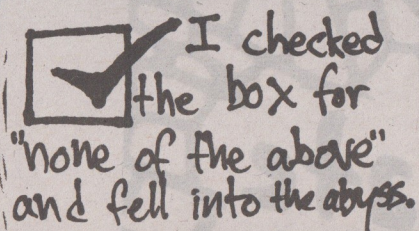 I checked
the box for
"none of the above"
and fell into the abyss.